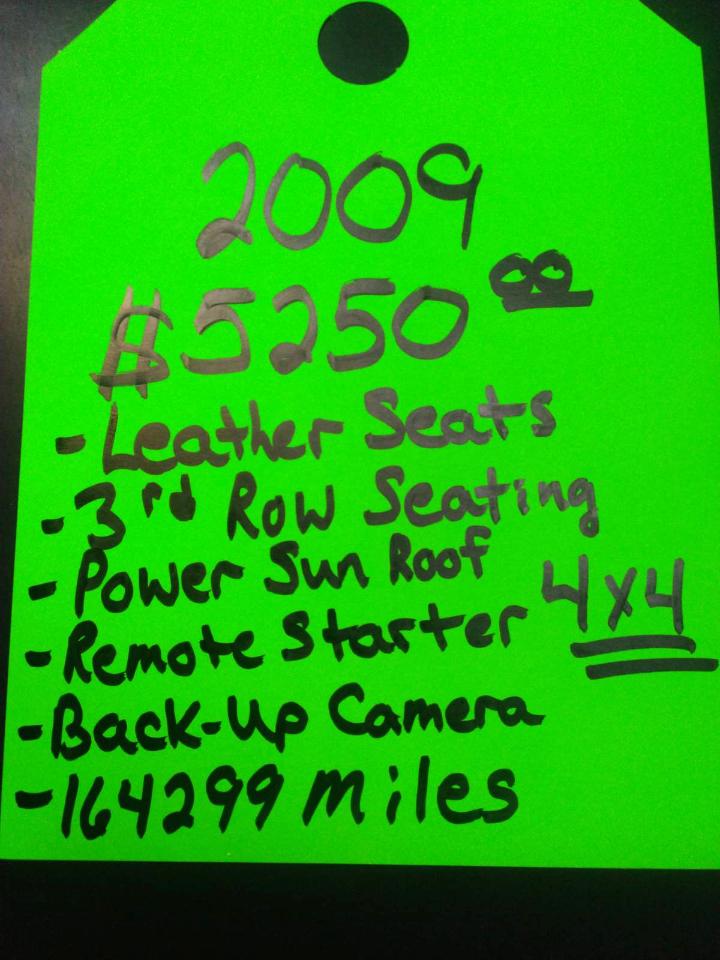 2009
$5250 00
- Leather Seats
- 3rd Row Seating
- Power Sun Roof
4x4
- Remote Starter
- Back-Up Camera
- 164299 miles